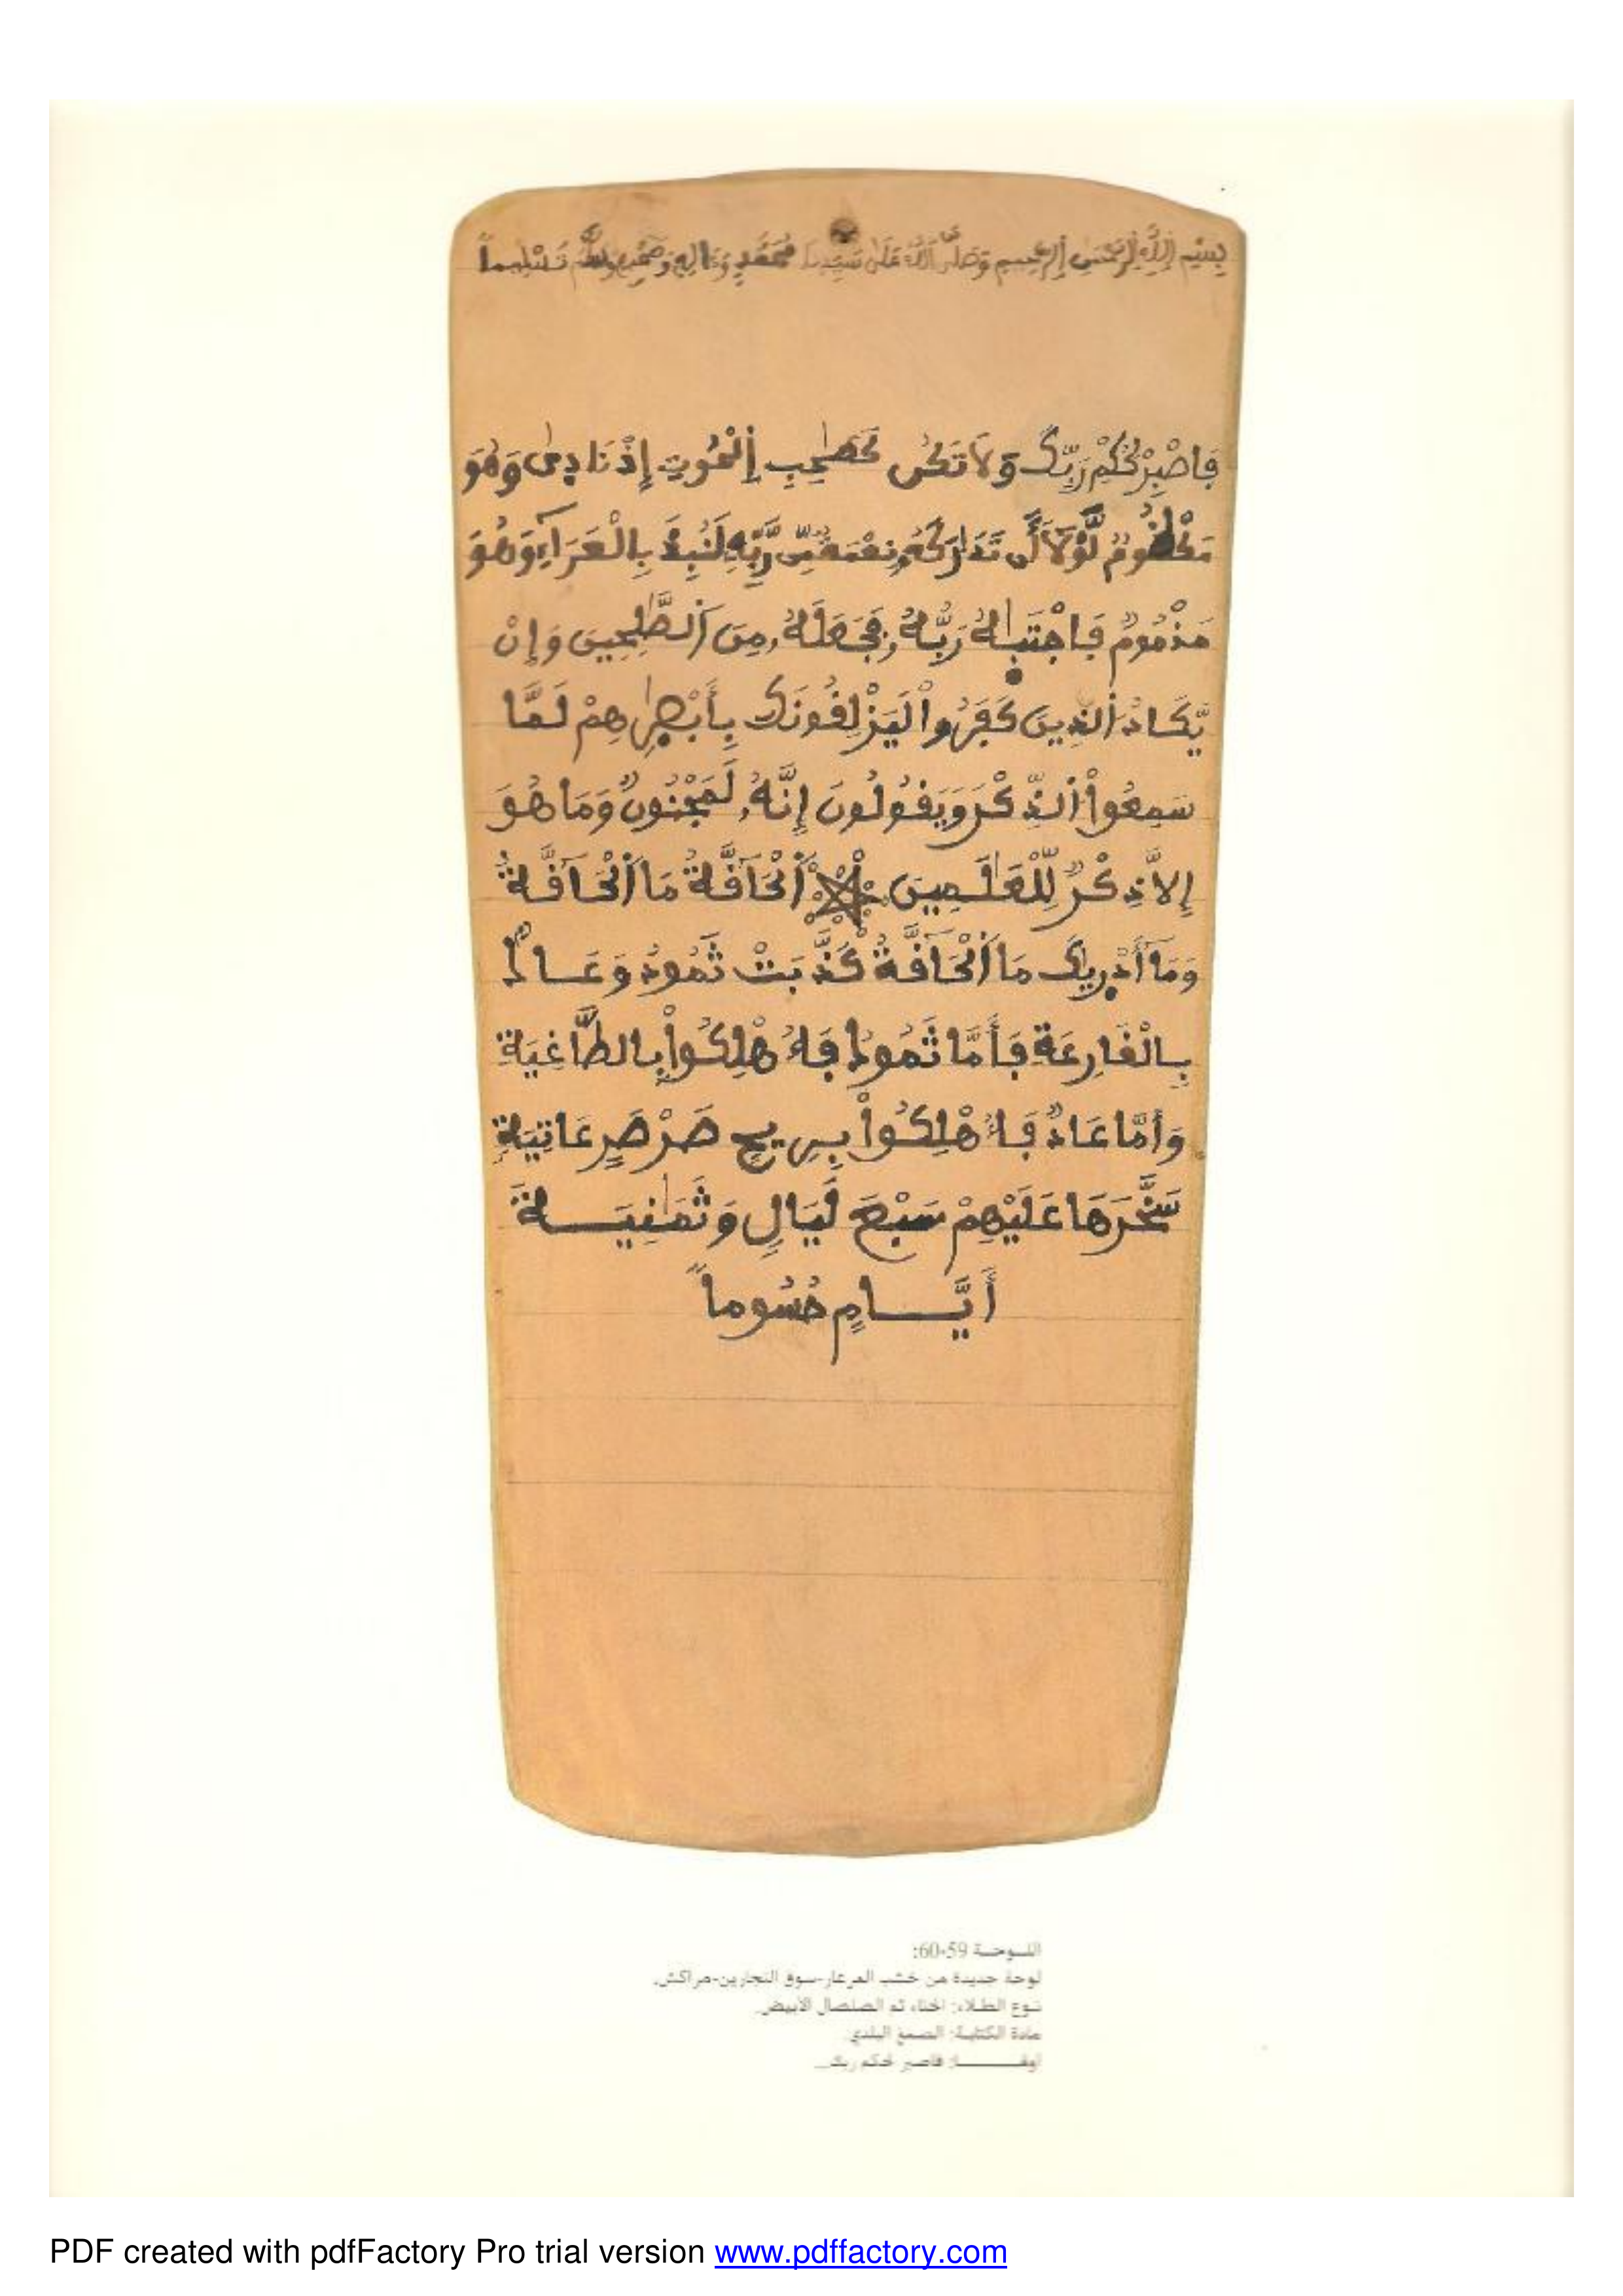 بِسْمِ اِ۬للَّهِ اِ۬لرَّحْمَٰنِ اِ۬لرَّحِيمِ وَصَلَّى اَ۬للَّهُ عَلَىٰ سَيِّدِنَا مُحَمَّدٍ وَءَالِهِ وَصَحْبِهِ وَسَلَّمَ تَسْلِيماً
فَاصْبِرْ لِحُكْمِ رَبِّكَ وَلَا تَكُن كَصَٰحِبِ اِ۬لْحُوتِ إِذْ نَادِىٰ وَهُوَ
مَكْظُومٌ لَّوْلَا أَن تَدَٰرَكَهُۥ نِعْمَةٌ مِّن رَّبِّهِۦ لَنُبِذَ بِالْعَرَآءِ وَهُوَ
مَذْمُومٌ فَاجْتَبَٰهُ رَبُّهُۥ فَجَعَلَهُۥ مِنَ اَ۬لصَّٰلِحِينَ وَإِنْ
يَّكَادُ اُ۬لذِينَ كَفَرُواْ لَيَزْلِفُونَكَ بِأَبْصِٰرِهِمْ لَمَّا
سَمِعُواْ اُ۬لذِّكْرَ وَيَقُولُونَ إِنَّهُۥ لَمَجْنُونٌ وَمَا هُوَ
إِلَّا ذِكْرٌ لِّلْعَٰلَمِينَ اَ۬لْحَآقَّةُ مَا اَ۬لْحَآقَّةُ
وَمَآ أَدْرِيٰكَ مَا اَ۬لْحَآقَّةُ كَذَّبَتْ ثَمُودُ وَعَادٌ
بِالْقَارِعَةِ فَأَمَّا ثَمُودُ فَأُهْلِكُواْ بِالطَّاغِيَةِ
وَأَمَّا عَادٌ فَأُهْلِكُواْ بِرِيحٍ صَرْصَرٍ عَاتِيَةٍ
سَخَّرَهَا عَلَيْهِمْ سَبْعَ لَيَالٍ وَثَمَٰنِيَةَ
أَيَّامٍ حُسُوماً
اللوحة 59-60:
لوحة جديدة من خشب العرعار-سوق النجارين-مراكش.
نوع الطلاء: الحناء ثم الصلصال الأبيض.
مادة الكتابة: الصمغ البلدي
أولها: فاصبر لحكم ربك...
PDF created with pdfFactory Pro trial version www.pdffactory.com